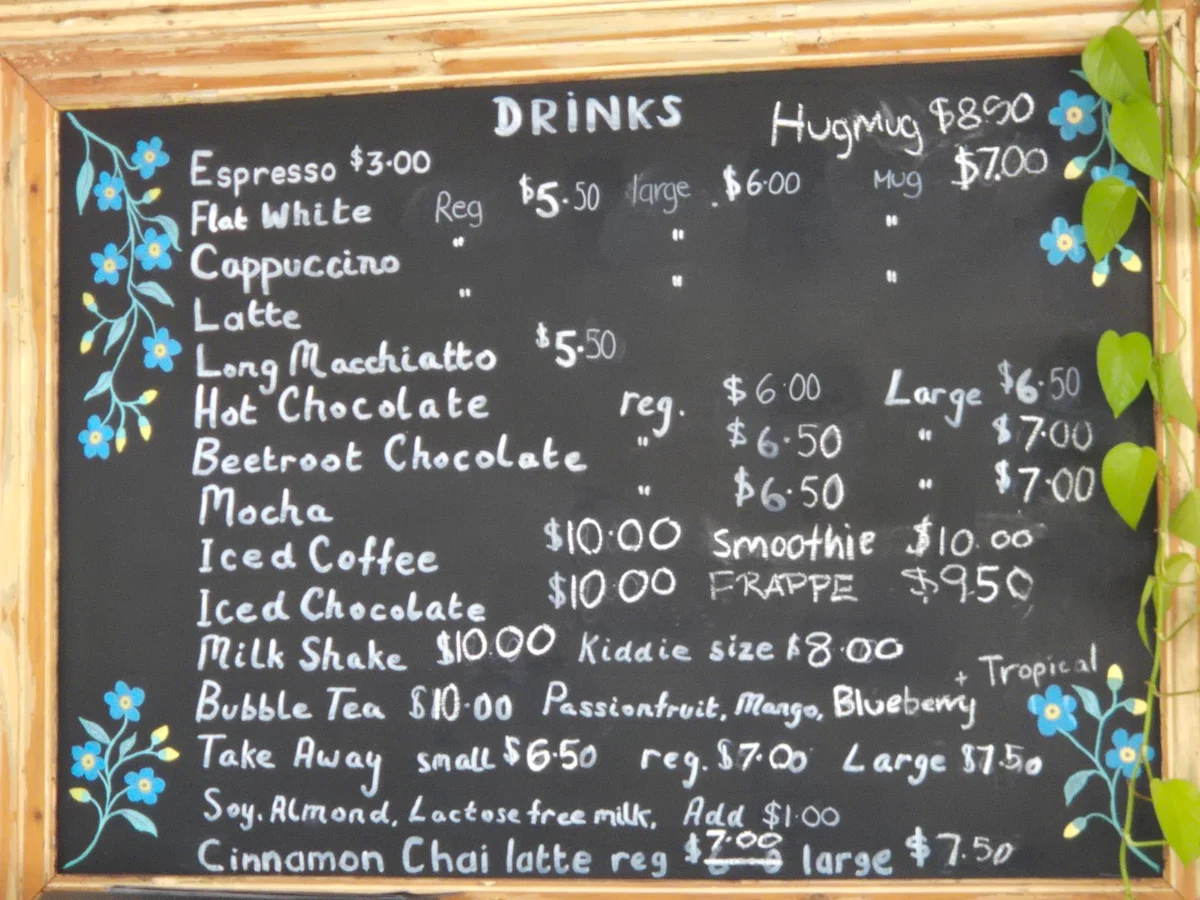 DRINKS
HugMug $8.50
Espresso $3.00
Flat White Reg $5.50 large $6.00 Mug $7.00
Cappuccino " " "
Latte " " "
Long Macchiatto $5.50
Hot Chocolate reg. $6.00 Large $6.50
Beetroot Chocolate " $6.50 " $7.00
Mocha " $6.50 " $7.00
Iced Coffee $10.00 Smoothie $10.00
Iced Chocolate $10.00 FRAPPE $9.50
Milk Shake $10.00 Kiddie size $8.00
Bubble Tea $10.00 Passionfruit, Mango, Blueberry + Tropical
Take Away small $6.50 reg. $7.00 Large $7.50
Soy, Almond, Lactose free milk, Add $1.00
Cinnamon Chai latte reg $7.00 large $7.50